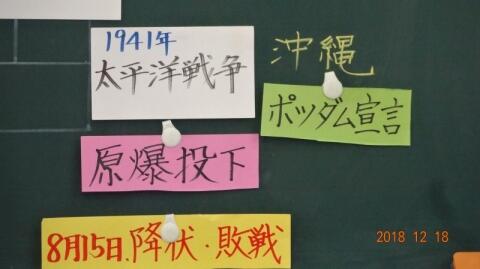 1941年
太平洋戦争
沖縄
ポツダム宣言
原爆投下
8月15日、降伏・敗戦
2018 12 18